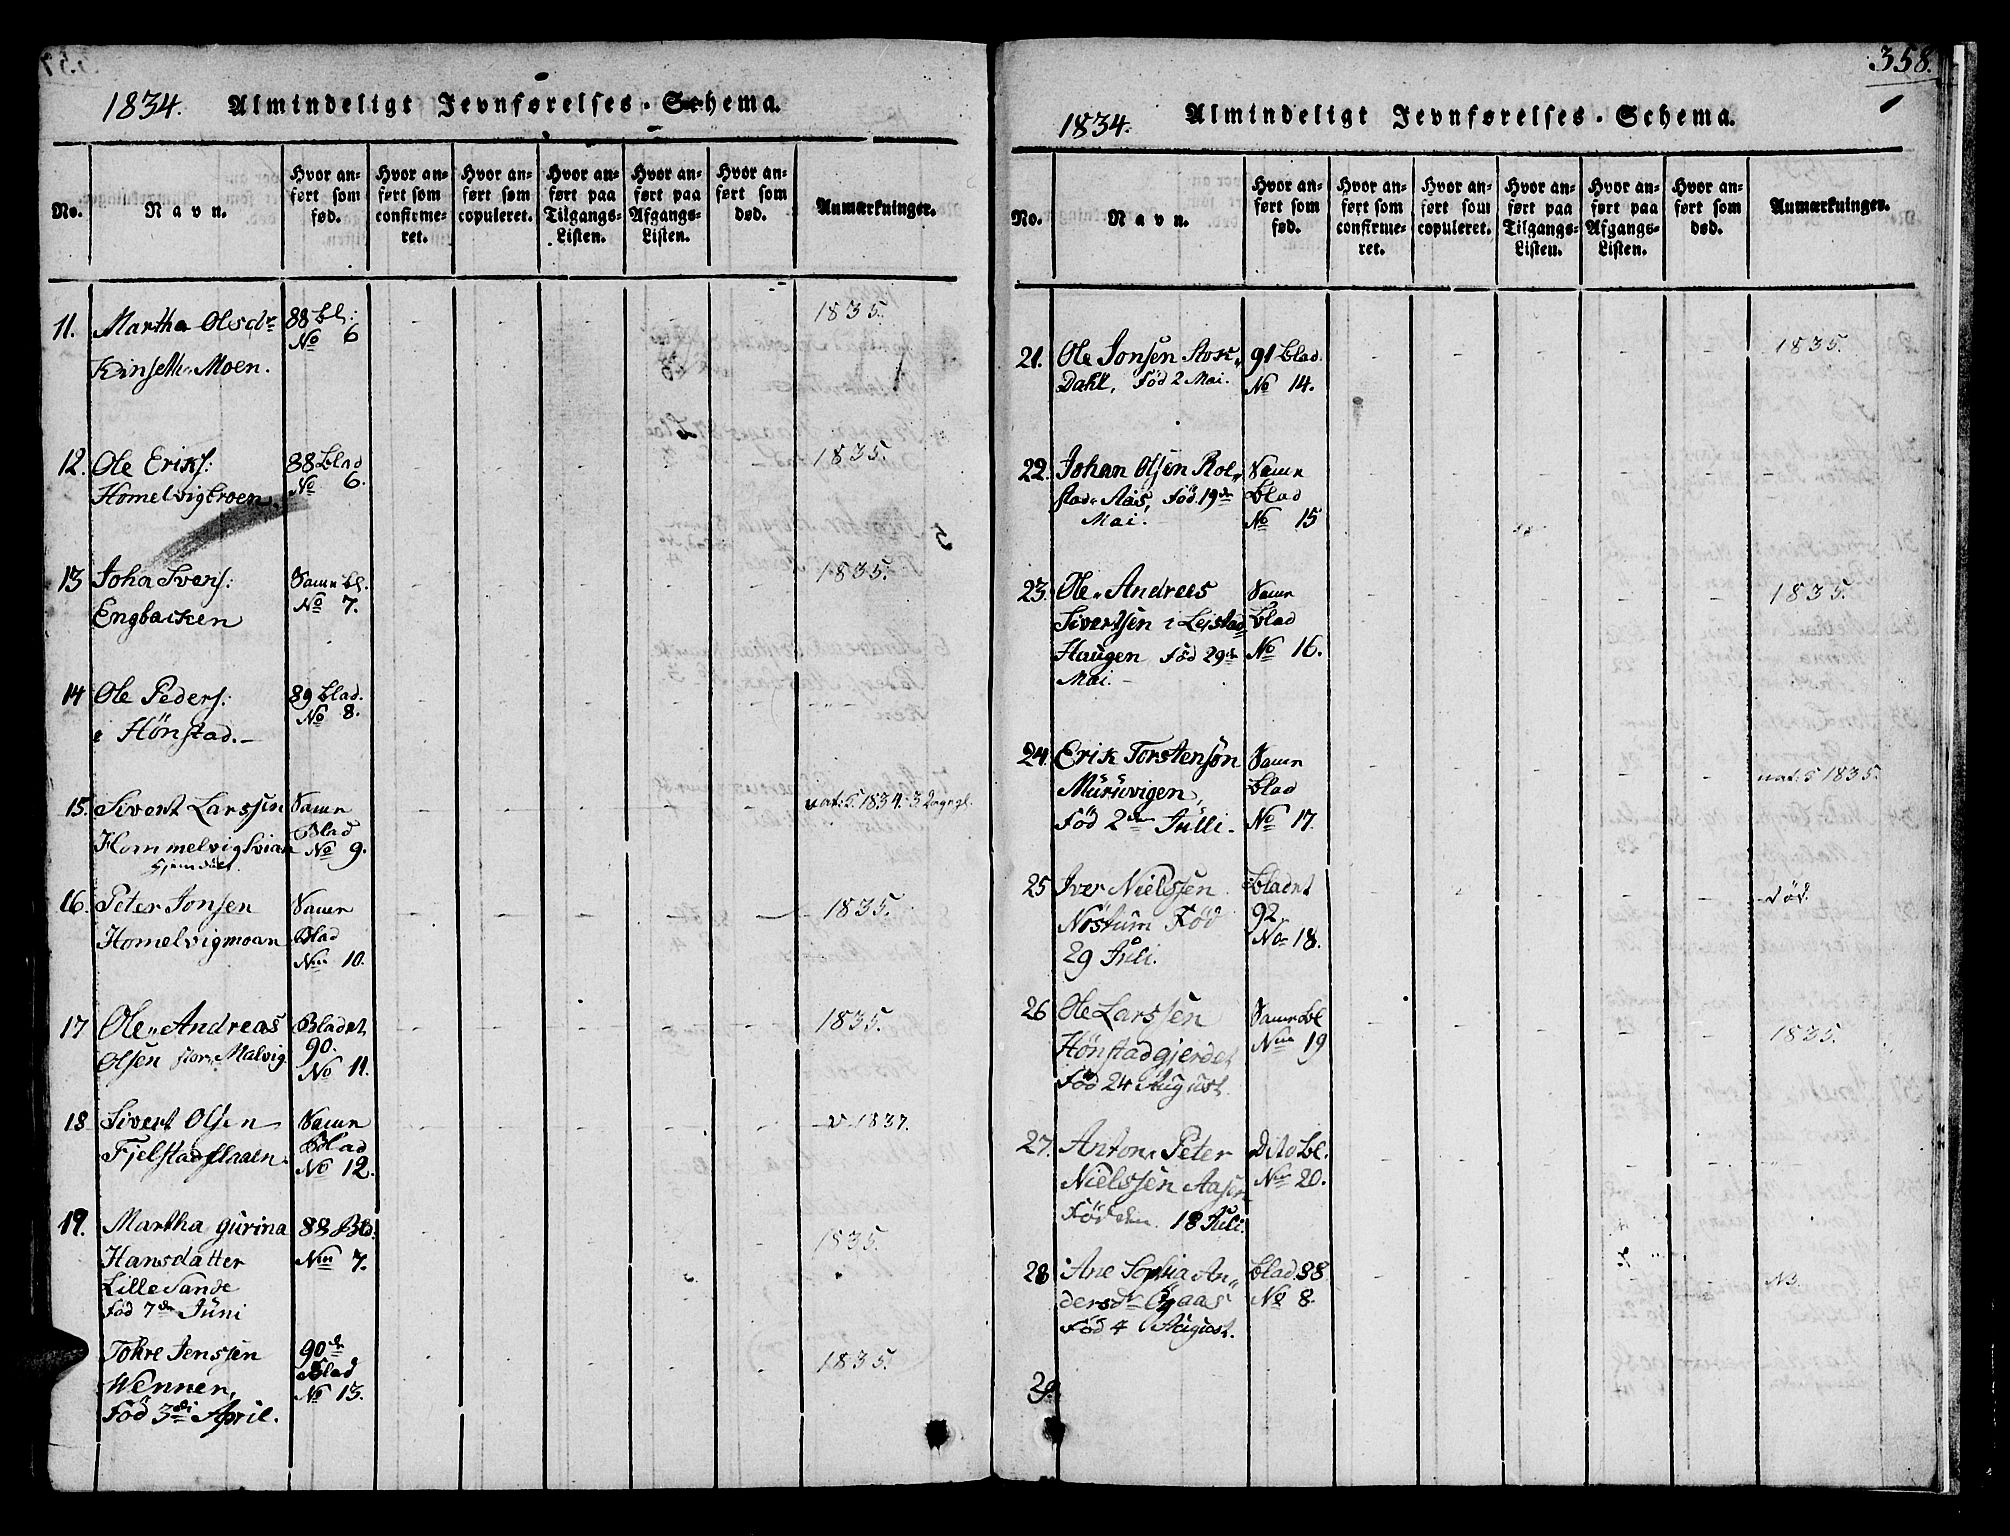 1834. Almindeligt Jevnførelses-Schema.
No.
Navn.
Hvor anført som fød.
Hvor anført som confirmeret.
Hvor anført som copuleret.
Hvor anført paa Tilgangs-Listen.
Hvor anført paa Afgangs-Listen.
Hvor anført som død.
Anmærkninger.
11. Martha Olsdr 88 bl: 1835.
Kinseth Moen. No 6
12. Ole Eriks: 88 blad 1835.
Homelvigbroen. No 6.
13 Joha Svers: Samr bl. 1835.
Engbacken No 7.
14 Ole Peders: 89 blad.
i Hönstad. No 8.
15. Sivert Larssen Samr 1834. 3 Dag gl.
Hommelvig Svian Blad
Hjemdöbt. No 9.
16. Peter Jonsen Samr 1835.
Homelvigmoan Blad
No 10.
17 Ole Andreas Bladet 1835.
Olsen stor Malvig 90.
No 11.
18 Sivert Olsen Samr v 1837.
Fjelstadflaaen Blad
No 12.
19. Martha Gurina 88 Bld. 1835.
Hansdatter No 7.
Lille Sande
Föd 7de Juni
Tohre Jenssen 90de 1835.
Wennen, Blad
Föd 3di April. No 13.
358.
1834. Almindeligt Jevnførelses-Schema.
No.
Navn.
Hvor anført som fød.
Hvor anført som confirmeret.
Hvor anført som copuleret.
Hvor anført paa Tilgangs-Listen.
Hvor anført paa Afgangs-Listen.
Hvor anført som død.
Anmærkninger.
21. Ole Jonsen Stor„ 91 blad. 1835.
Dahl, Föd 2 Mai. No 14.
22. Johan Olsen Rol„ Samr
stad Aas, Föd 19de blad
Mai. No 15
23. Ole Andrees Samr 1835.
Sivertsen i Leistad blad
Haugen Föd 29de No 16.
Mai.
24. Erik Torstensön Samr 1835.
Muruvigen, blad
Föd 2den Julli. No 17.
25 Iver Nielssen bladet död.
Nöstum Föd 92
29 Juli. No 18.
26 Ole Larssen Samr bl
Hönstadgjerdet No 19 1835.
Föd 24 August.
27. Anton Peter Dito bl.
Nielssen Aasen No 20.
Föd den 18 Juli.
28 Ane Sophia An„ blad. 88 N3.
dersdr No 8.
Föd 4 August.
29